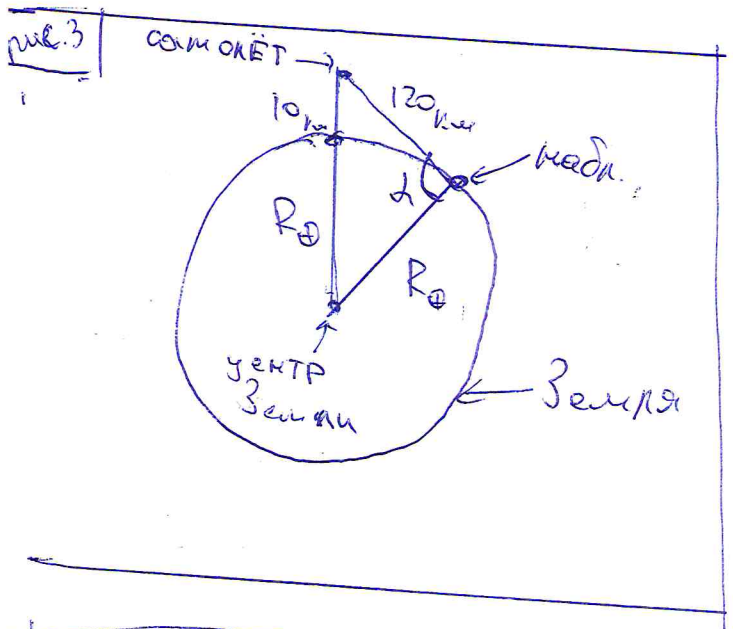 рис. 3
самолёт
10 км
120 км
набл.
α
R⊕
R⊕
центр
Земли
Земля